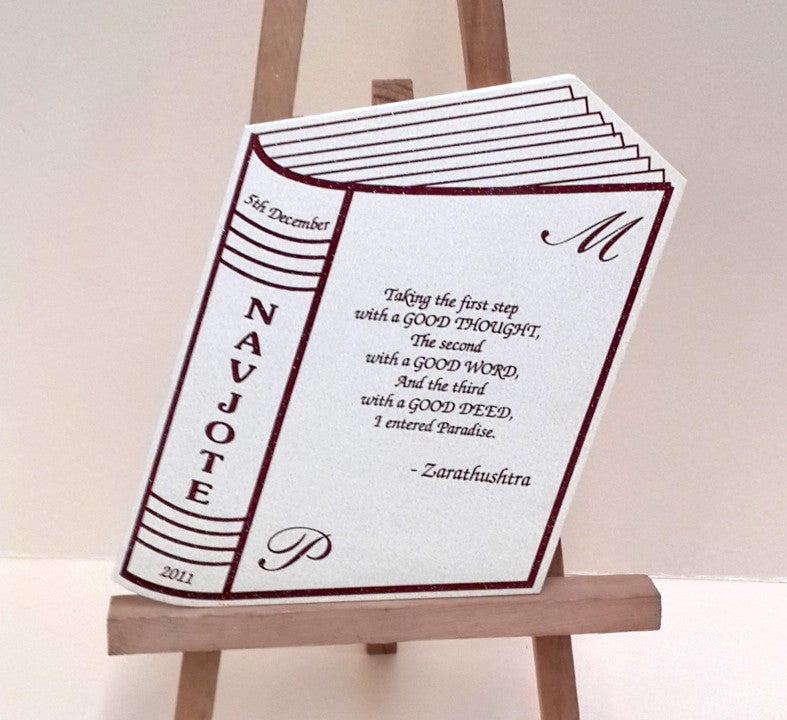 5th December
NAVJOTE
2011
M
Taking the first step
with a GOOD THOUGHT,
The second
with a GOOD WORD,
And the third
with a GOOD DEED,
I entered Paradise.
- Zarathushtra
P